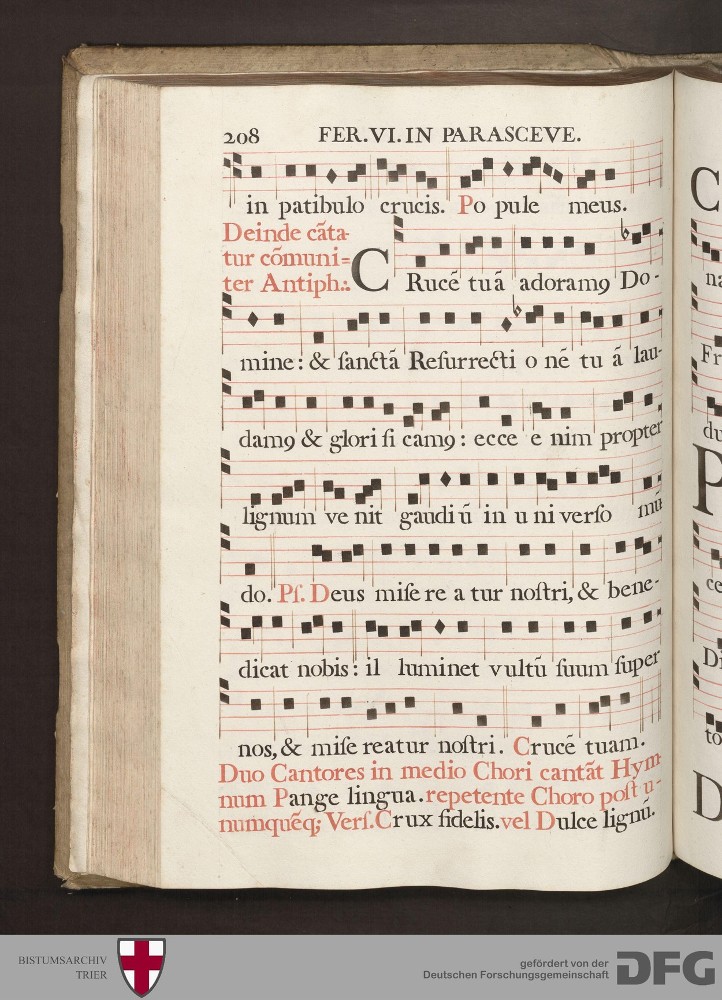 208 FER.VI.IN PARASCEVE.
in patibulo crucis. Po pule meus.
Deinde cãta-
tur cõmuni=
ter Antiph:.
CRucẽ tuã adoramꝯ Do-
mine: & ſanctã Reſurrecti o nẽ tu ã lau-
damꝯ & glori fi camꝯ: ecce e nim propter
lignum ve nit gaudi ũ in u ni verſo mũ
do. Pſ. Deus miſe re a tur noſtri, & bene-
dicat nobis: il luminet vultũ ſuum ſuper
nos, & miſe reatur noſtri. Crucẽ tuam.
Duo Cantores in medio Chori cantãt Hym
num Pange lingua. repetente Choro poſt u-
numquẽq; Verſ. Crux fidelis. vel Dulce lignũ.
C
na
Fr
du
P
ce
Di
to
D
BISTUMSARCHIV
TRIER
gefördert von der
Deutschen Forschungsgemeinschaft
DFG